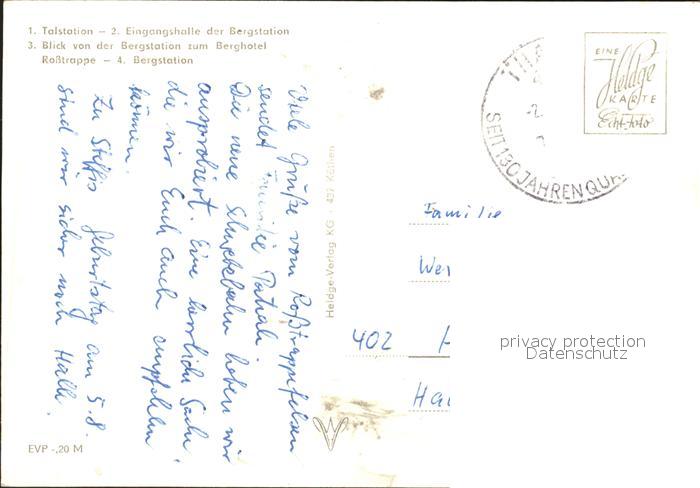 1. Talstation – 2. Eingangshalle der Bergstation
3. Blick von der Bergstation zum Berghotel
Roßtrappe – 4. Bergstation
Viele Grüße vom Roßtrappefelsen
sendet Familie
Die neue Schwebebahn haben wir
ausprobiert. Eine herrliche Sache,
die wir Euch auch empfehlen
können.
Zu Steffis Geburtstag am 5.8.
sind wir sicher noch Halle.
EVP -,20 M
Heldge-Verlag KG · 437 Köthen
SEIT 130 JAHREN
EINE
Heldge
KARTE
Echt-foto
Familie
402
privacy protection
Datenschutz